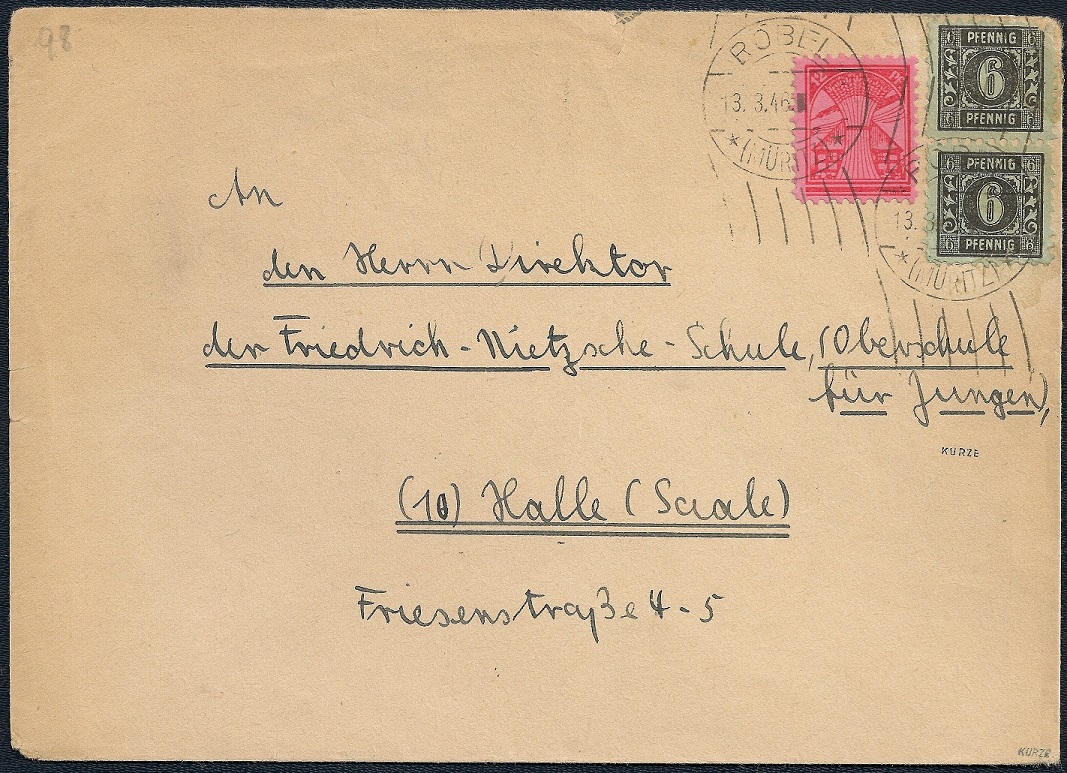 98
RÖBEL
13.3.46
(MÜRITZ)
12 PF
6 PFENNIG 6
6
6 PFENNIG 6
6 PFENNIG 6
6
6 PFENNIG 6
13.3
(MÜRITZ)
An
den Herrn Direktor
der Friedrich-Nietzsche-Schule, (Oberschule
für Jungen),
KURZE
(10) Halle (Saale)
Friesenstraße 4-5
KURZE